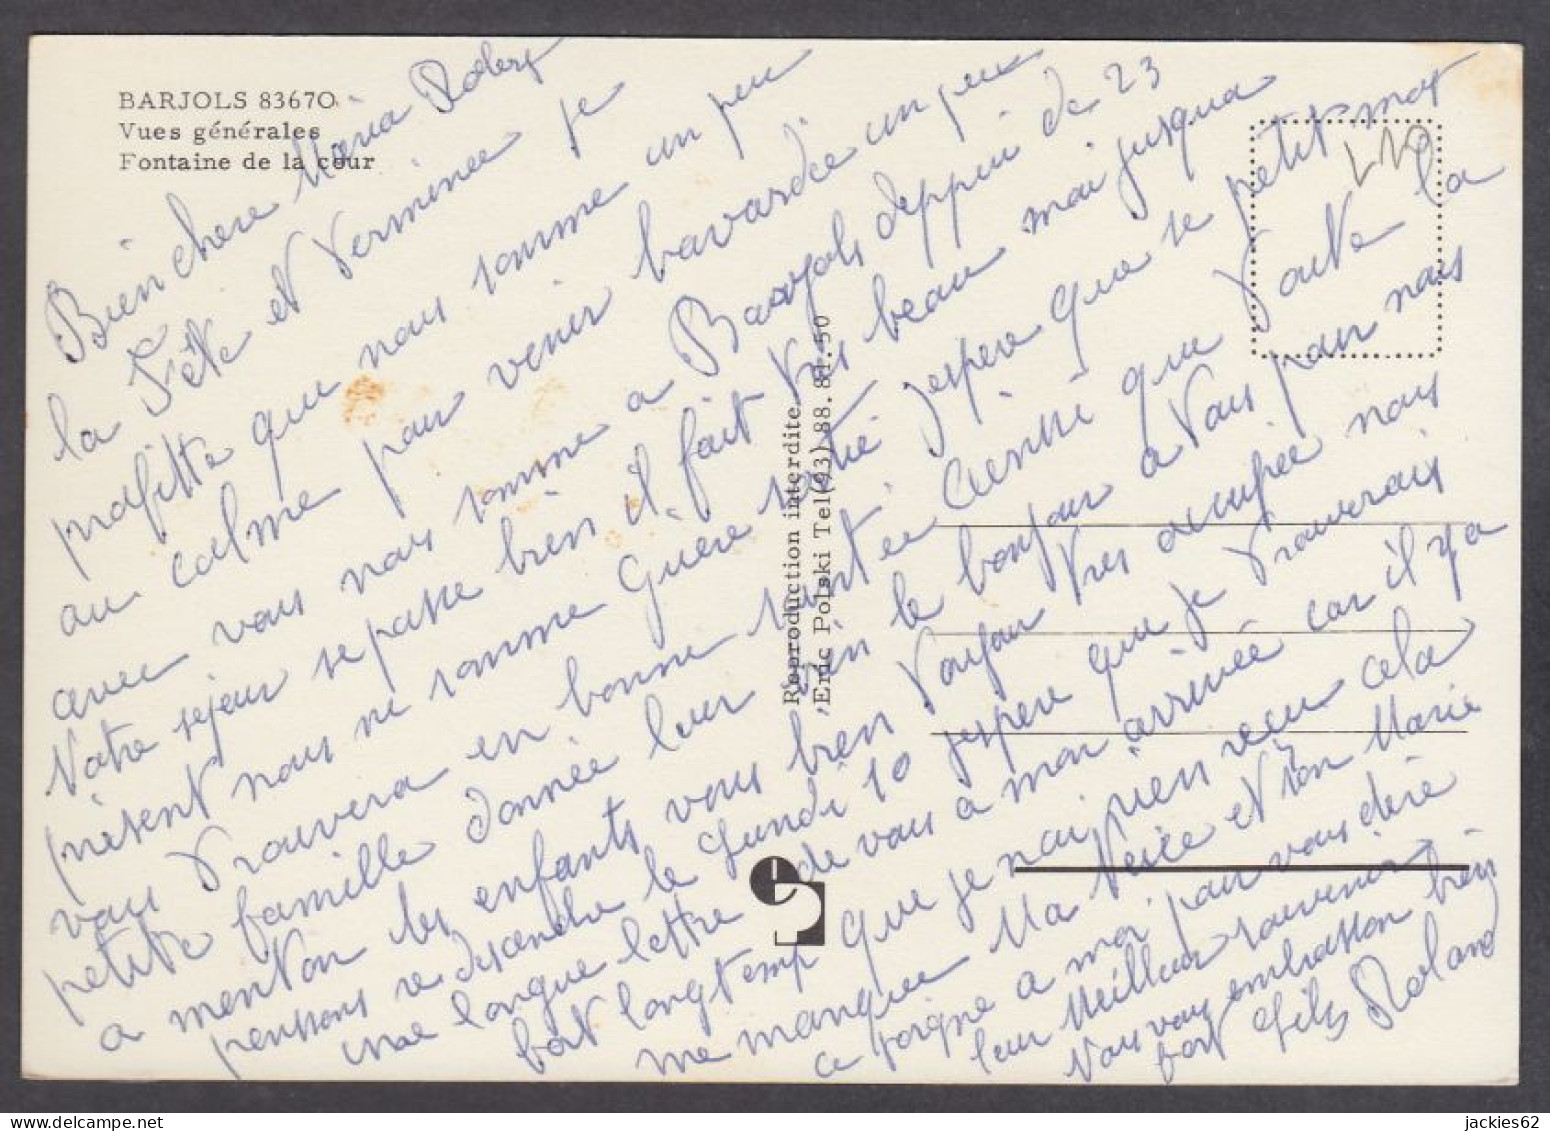 BARJOLS 83670
Vues générales
Fontaine de la cour
Bien chere Maria Robert
la Fête et Terminee je
profitte que nous somme un peu
au calme pour venir bavardée un peu
avec vous nous somme a Barjols deppui de 23
Notre sejour se passe bien il fait tres beau mai jusqua
présent nous ne somme Guere sortie jespere que se petit mot
vous trouvera en bonne santée ainsi que toute la
petite famille donnée leur bien le bonjour a tous pour nous
a menton les enfants vous bien toujour tres ocupée nous
penssons redesendre le Lundi 10 jespere que je trouverais
une longue lettre de vous a mon arrivée car il y a
bort longtemp que je nai rien recu cela
me manque Ma Niece et son Marie
ce joigne a moi pour vous dire
leur Meilleur souvenir
Nous vous embrasson bien
fort Gilles Roland
Reproduction interdite
Eric Polski Tel (93) 88.81.50
jackies62